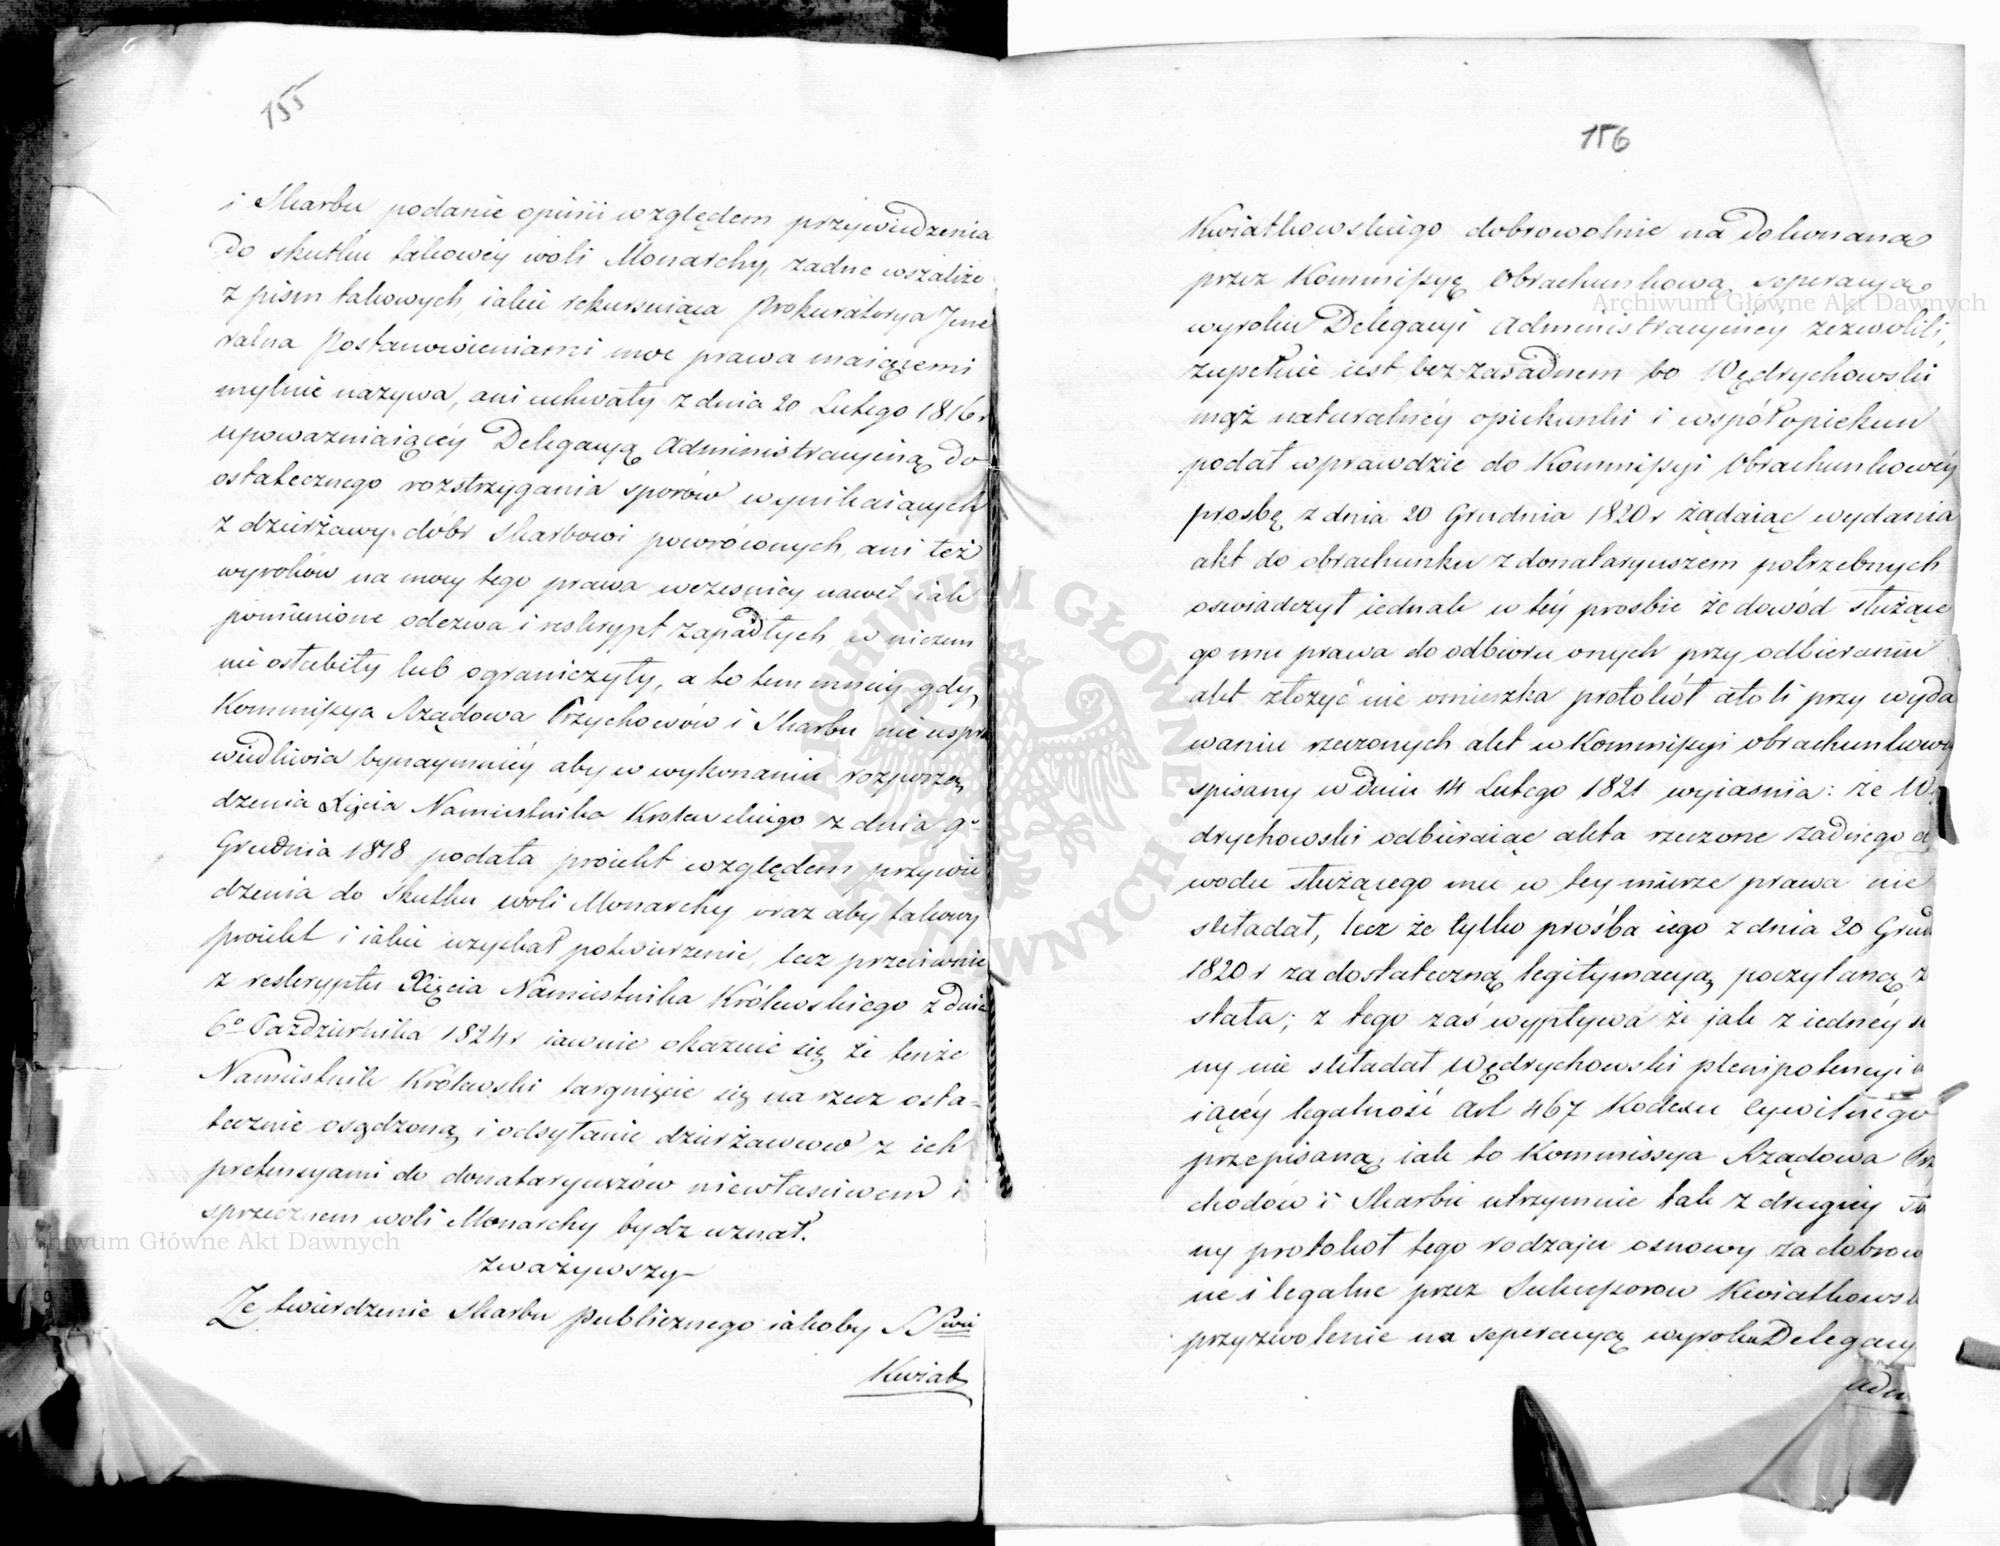 155
i Skarbu podanie opinii względem przywiedzenia
do skutku takowey woli Monarchy, żadne wszakże
z pism takowych, iakie rekursuiąca Prokuratorya Jene
ralna Postanowieniami moc prawa maiącemi
mylnie nazywa, ani uchwały z dnia 20 Lutego 1816 r
upoważniaiącéy Delegacyą Administracyiną do
ostatecznego rozstrzygania sporów wynikaiących
z dzierżawy dóbr Skarbowi powróconych, ani też
wyroków na mocy tego prawa wcześniey nawet iak
pomienione odezwa i reskrypt zapadłych, w niczem
nie osłabiły lub ograniczyły, a to tem mniey gdy
Kommissya Rządowa Przychodów i Skarbu nie uspra
wiedliwia bynaymniéy aby w wykonaniu rozporzą
dzenia Xięcia Namiestnika Królewskiego z dnia 9o
Grudnia 1818 podała proiekt względem przywie
dzenia do skutku woli Monarchy oraz aby takowy
proiekt i iakie uzyskał potwierzenie, lecz przeciwnie
z reskryptu Xięcia Namiestnika Królewskiego z dnia
6o Października 1824 r iawnie okazuie się że tenże
Namiestnik Królewski targnięcie się na rzecz osta-
tecznie osądzoną i odsyłanie dzierżawców z ich
pretensyami do donataryuszów niewłaściwem i
sprzecznem woli Monarchy bydz uznał.
Zważywszy
Że twierdzenie Skarbu publicznego iakoby SSwie
Kwiat
156
Kwiatkowskiego dobrowolnie na dokonaną
przez Kommissyę Obrachunkową seperacyą
wyroku Delegacyi Administracyinéy zezwolili,
zupełnie iest bez-zasadnem bo Wędrychowski
mąż naturalnéy opiekunki i współopiekun
podał wprawdzie do Kommissyi Obrachunkowéy
prosbę z dnia 20 Grudnia 1820 r żądaiąc wydania
akt do obrachunku z donataryuszem potrzebnych
oswiadczył iednak w téy prosbie że dowód służące
go mu prawa do odbioru onych przy odbieraniu
akt złożyć nie omieszka protokół atoli przy wyda
waniu rzeczonych akt w Kommissyi obrachunkowéy
spisany w dniu 14 Lutego 1821 wyiasnia: że Wę
drychowski odbieraiąc akta rzeczone żadnego do
wodu służącego mu w tey mierze prawa nie
składał, lecz że tylko prośba iego z dnia 20 Grud
1820 r za dostateczną legitymacyą poczytaną z
stała; z tego zaś wypływa że jak z iednéy st
ny nie składał Wędrychowski plenipotencyi
iącéy legalność Art 467 Kodexu Cywilnego
przepisaną, iak to Kommissya Rządowa Prz
chodów i Skarbu utrzymuie tak z drugiey st
ny protokół tego rodzaju osnowy za dobrow
ne i legalne przez Sukcessorow Kwiatkows
przyzwolenie na seperacyą wyroku Delegacy
adm
Archiwum Główne Akt Dawnych
Archiwum Główne Akt Dawnych
ARCHIWUM GŁÓWNE AKT DAWNYCH